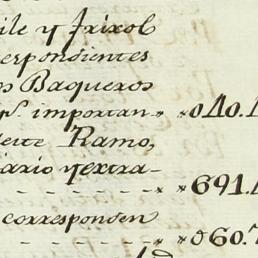 ile y Frixol
espondientes
os Baqueros
p.s importan- „ „ 040.
este Ramo,
iario y extra-
- - - - - - „ „ 691.
corresponden
- - - - - - „ „ 060.7